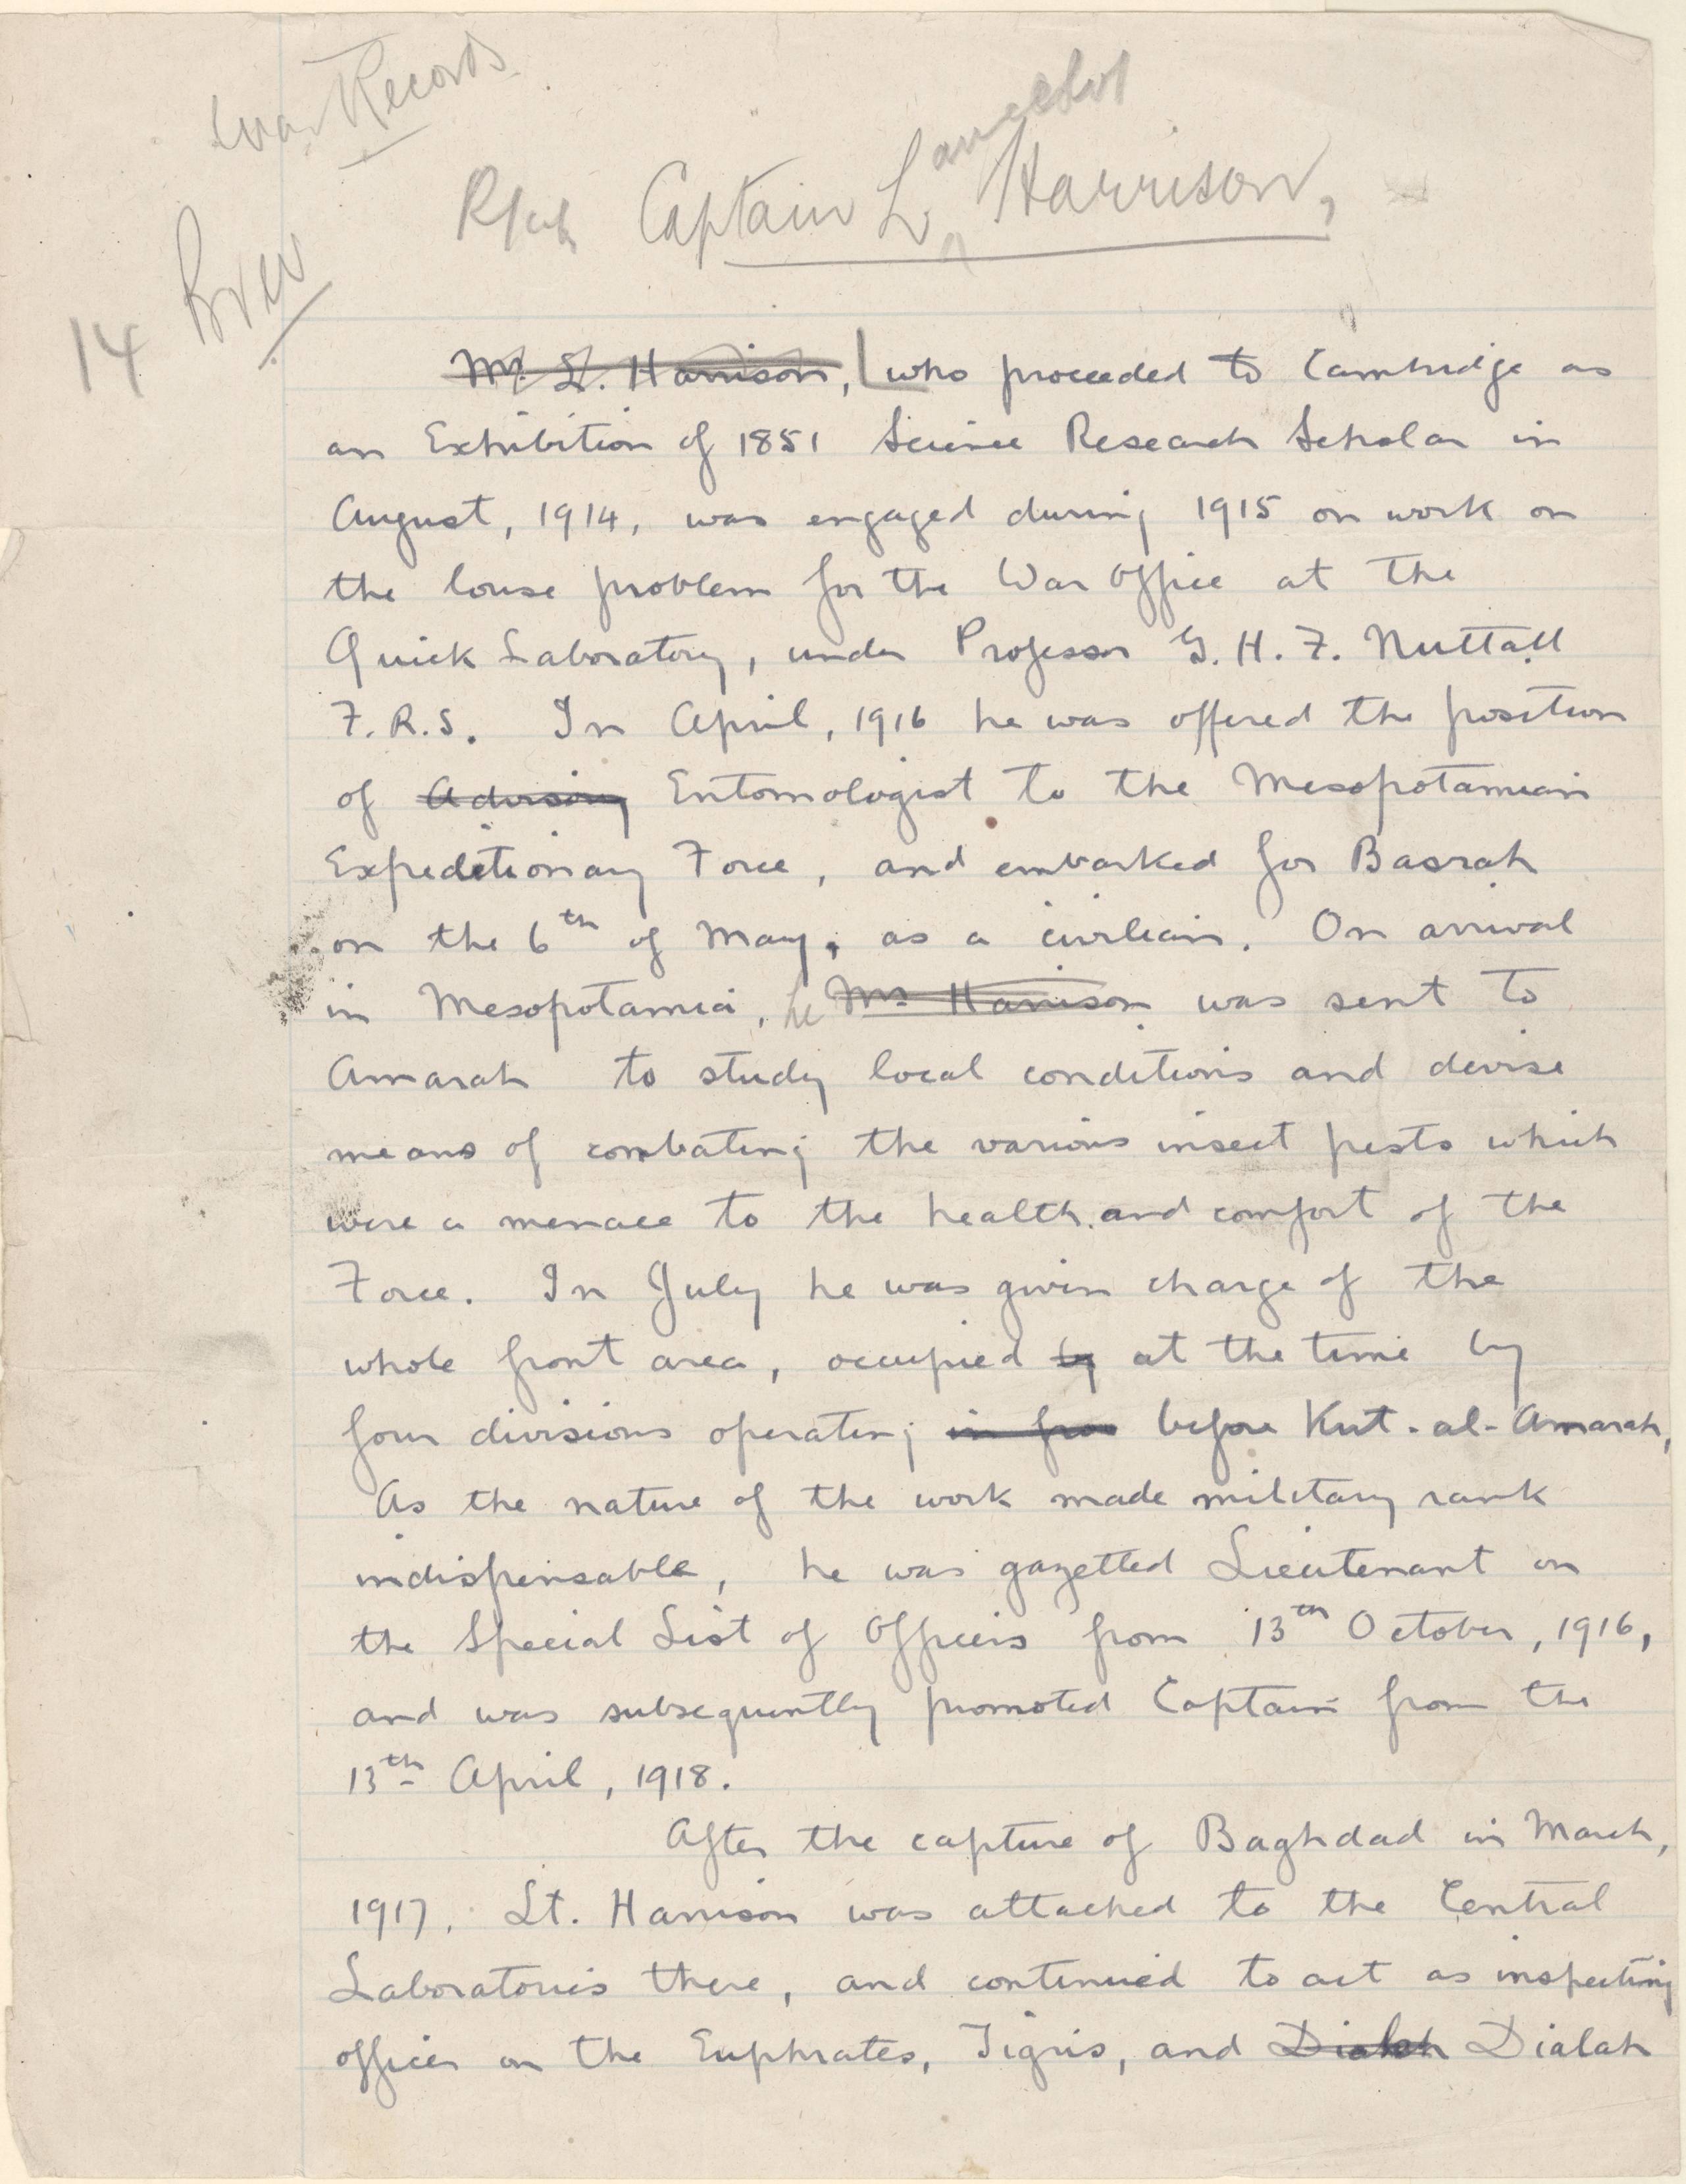 War Records
Captain Lancelot Harrison,
Brev
14
Mr. L. Harrison, who proceeded to Cambridge as
an Exhibition of 1851 Science Research Scholar in
August, 1914, was engaged during 1915 on work on
the louse problem for the War Office at the
Quick Laboratory, under Professor G. H. F. Nuttall
F.R.S. In April, 1916 he was offered the position
of Advisory Entomologist to the Mesopotamian
Expeditionary Force, and embarked for Basrah
on the 6th of May, as a civilian. On arrival
in Mesopotamia, he Mr Harrison was sent to
Amarah to study local conditions and devise
means of combating the various insect pests which
were a menace to the health and comfort of the
Force. In July he was given charge of the
whole front area, occupied by at the time by
four divisions operating in fron before Kut-al-Amarah,
As the nature of the work made military rank
indispensable, he was gazetted Lieutenant on
the Special List of Officers from 13th October, 1916,
and was subsequently promoted Captain from the
13th April, 1918.
After the capture of Baghdad in March,
1917, Lt. Harrison was attached to the Central
Laboratories there, and continued to act as inspecting
officer on the Euphrates, Tigris, and Dialah Dialah